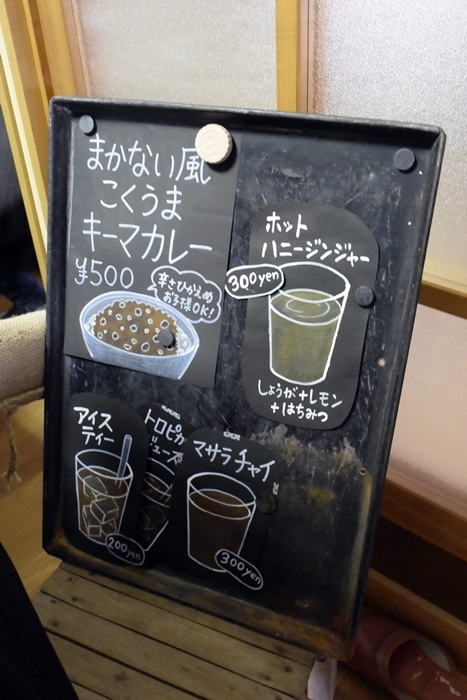 まかない風
こくうま
キーマカレー
¥500
辛さひかえめ
お子様OK!
ホット
ハニージンジャー
300yen
しょうが+レモン
+はちみつ
アイス
ティー
200yen
トロピカ
ュース
マサラチャイ
300yen